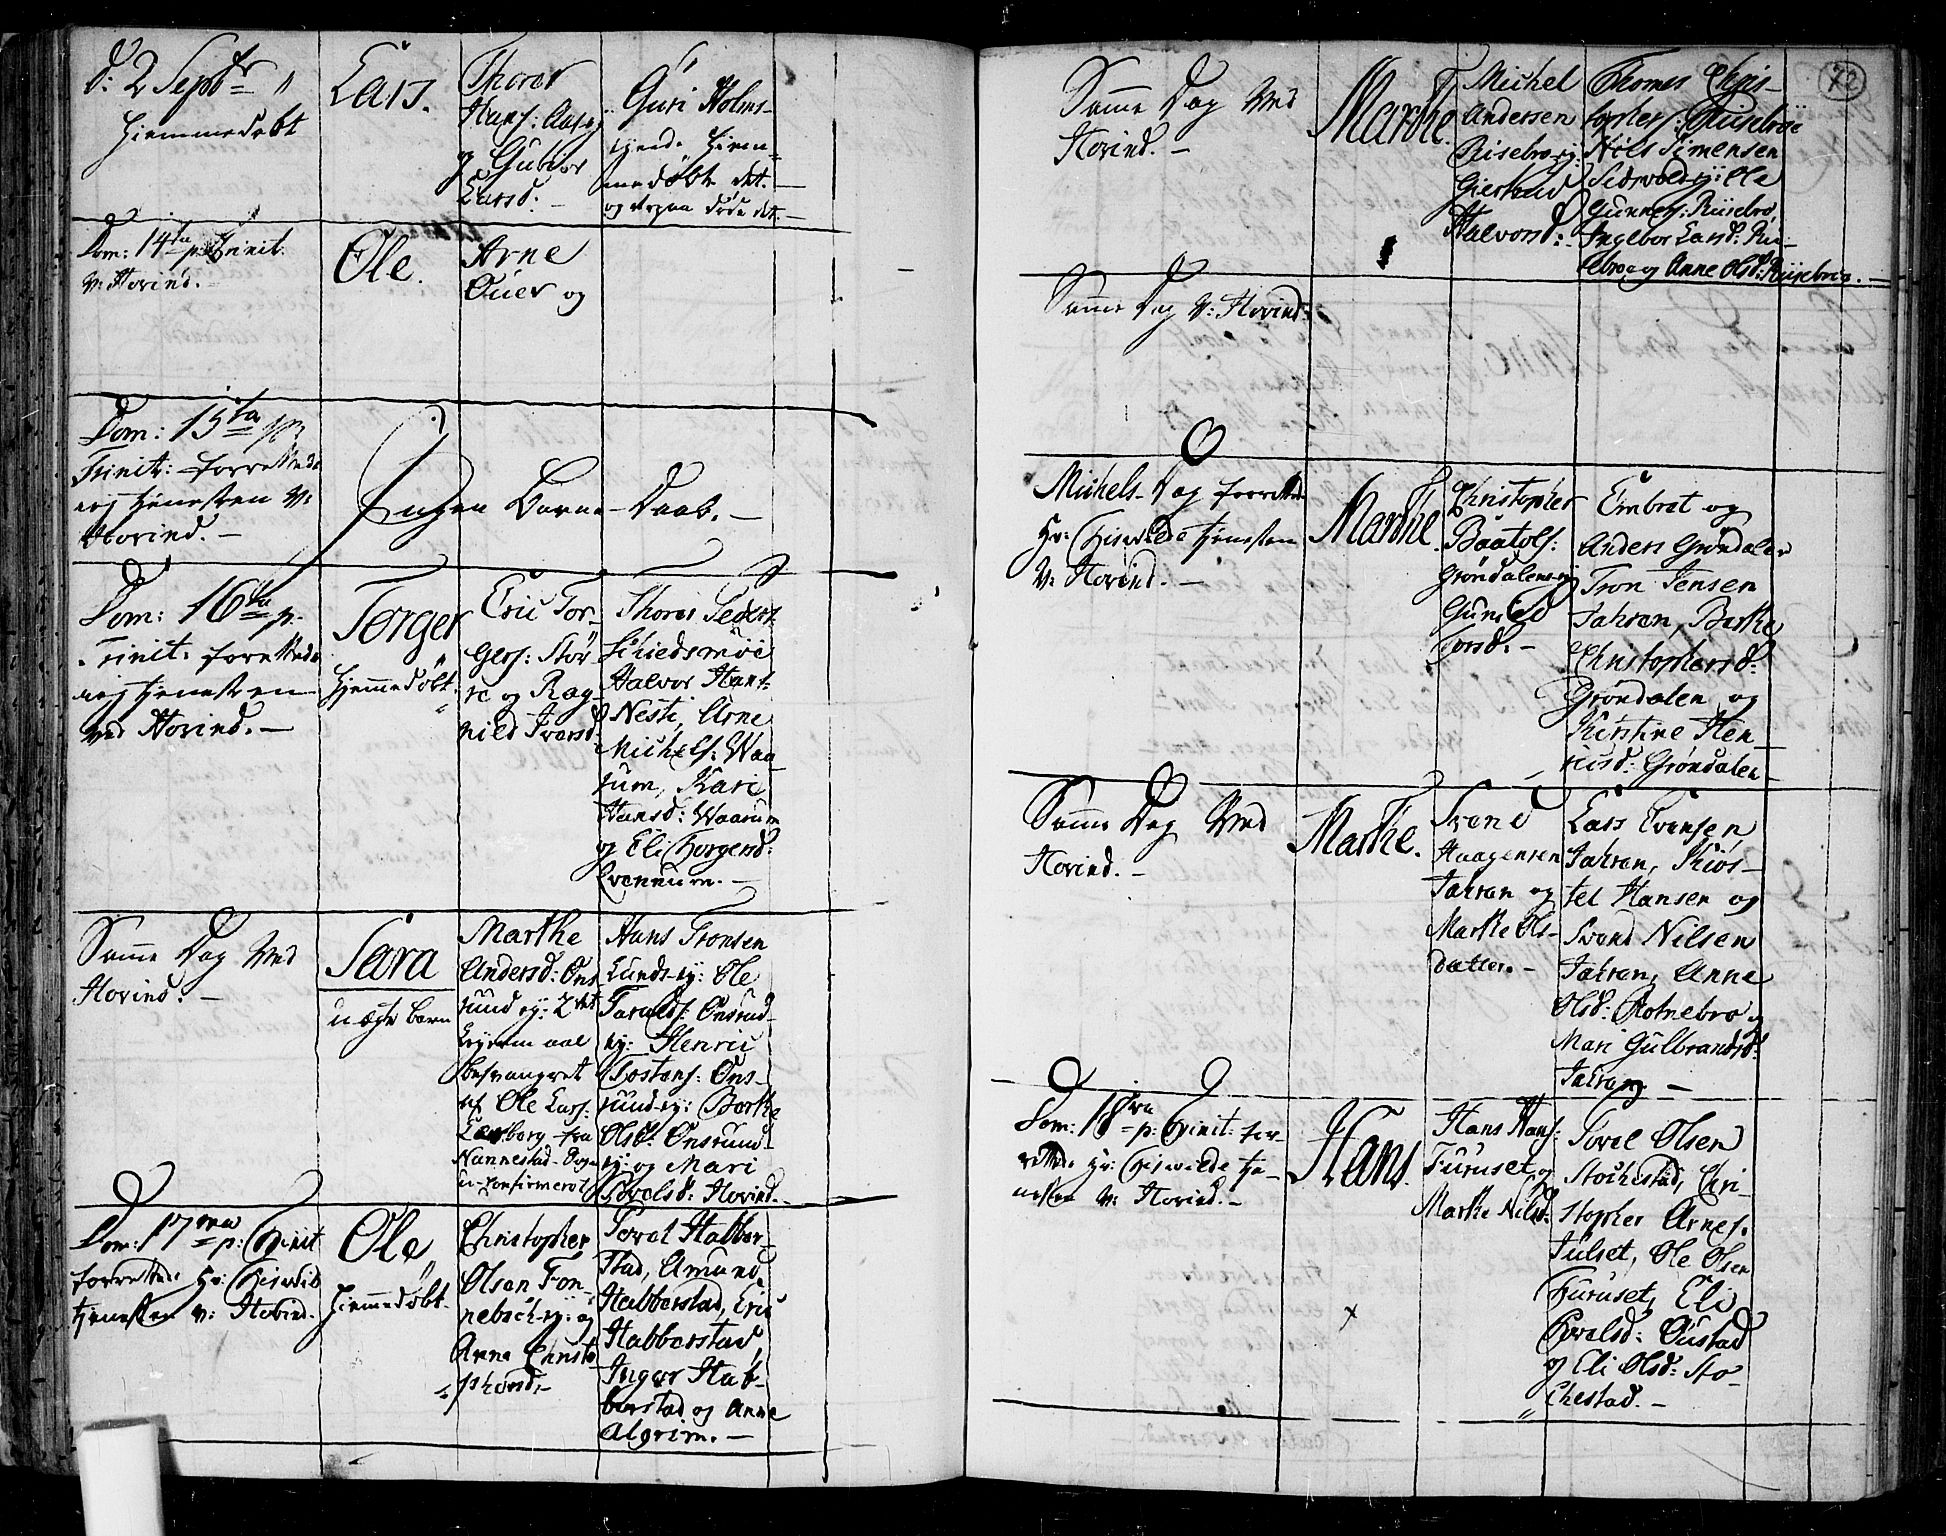 d: 2 Septbr "
hiemmedøbt
Lars.
Thorer
Hans: Aas ej:
og Gubiør
Larsd: -
Guri Holms-
ejende hiem-
medøbte det. -
og døde det. -
Dom: 14ta p: Trinit.
v: Hovind. -
Ole.
Arne
Øuer og
Dom: 15ta p:
Trinit: forrettede
jeg tjenesten v:
Hovind. -
Ingen Barne-Daab. -
Dom: 16ta p.
Trinit: forrettede
jeg tjenesten
ved Hovind. -
Torger
hjemmedøbt.
Eric Tor-
gers: Stør-
re og Rag-
nild Iversd.
Thorer Peders:
Schiedsmoe
Halvor Hans:
Nesti, Arne
Michels: Waa-
rum, Kari
Hansd: Waarum
og Eli Torgersd:
Evennum. -
Samme Dag ved
Hovind. -
Sara
uægte barn
Marthe
Andersd: Ons-
rund ej: 2det
Leyermaal
besvangret
af Ole Lars:
fra
Nannestad-Sogn
u-konfirmeret
Hans Tronsen
Lunds-ej: Ole
Taralds: Onsrud-
ej: Henric
Tostens: Ons-
rund-ej: Berthe
Olsd: Onsrund
ej: og Mari
Povelsd: Hovind. -
Dom: 17ma p: Trinit
forrettede Hr: Hiswid
tjenesten v: Hovind.
Ole
hiemmedøbt.
Christopher
Olsen Ton-
nebech-ej: og
Anne Christo-
phersd. -
Povel Habber-
stad, Amund
Habberstad, Eric
Habberstad,
Inger Hab-
berstad og Anne
Algrim. -
72
Samme Dag ved
Hovind. -
Marthe.
Michel
Andersen
Risebro ej:
Giertrud
Halvorsd: -
Thomes Chris-
tophers: Riisebroe
Nils Simensen
Sedsvold-ej: Ole
Gunners: Riisebro,
Ingebor Larsd: Rii-
sebroe og Anne Olsd: Riisebroe. -
Samme Dag v: Hovind:
Michels-Dag forrettede
Hr: Hiswilde tjenesten
v: Hovind. -
Marthe.
Christopher
Baatols:
Grøndalens-ej:
Gunild
Torsd. -
Embret og
Anders Grøndalen
Tron Jensen
Jahran, Berthe
Christophersd:
Grøndalen og
Kirstine Hen-
ricsd: Grøndalen -
Samme Dag ved
Hovind. -
Marthe.
Svend
Haagensen
Jahran og
Marthe Ols-
datter. -
Lars Evensen
Jahran, Kiøs-
tel Hansen og
Svend Nilsen
Jahran, Anne
Olsd: Holnebro og
Mari Gulbrandsd:
Jahran -
Dom: 18va p: Trinit: for-
rettede Hr: Hiswilde tje-
nesten v: Hovind. -
Hans.
Hans Hans:
Furuset og
Marthe Nilsd:
Povel Olsen
Stochestad, Chri-
stopher Arnes:
Julset, Ole Olsen
Furuset, Eli
Povelsd: Oustad
og Eli Olsd: Sto-
chestad. -